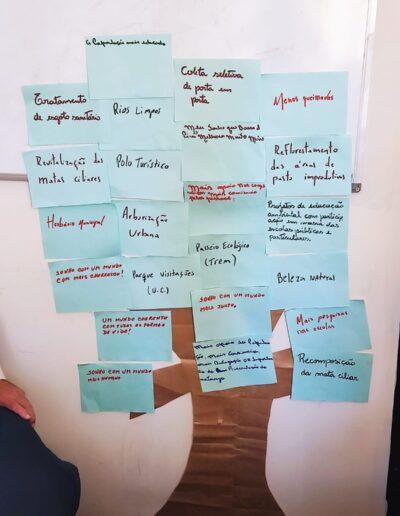 a População mais educada
Tratamento
de esgoto sanitário
Rios Limpos
Coleta seletiva
de porta em
porta
Menos queimadas
Meu Sonho que Banco d
Revitalização das
matas ciliares
Polo Turístico
Reflorestamento
das áreas de
pasto improdutivas
Mais apoio nas coop
Herbário Municipal
Arborização
Urbana
Passeio Ecológico
(Trem)
Projetos de educação
ambiental com
escolas públicas e
particulares.
SONHO COM UM MUNDO
COM MAIS
Parque visitações
(U.C.)
Beleza Natural
SONHO COM UM MUNDO
MAIS JUSTO.
UM MUNDO COERENTE
COM TODAS AS FORMAS
DE VIDA!
Mais pesquisas
nas escolas
SONHO COM UM MUNDO
MAIS HUMANO
Recomposição
da mata ciliar